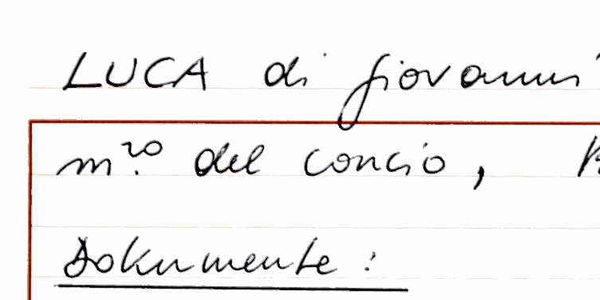 LUCA di Giovanni
m.ro del concio,
Dokumente: